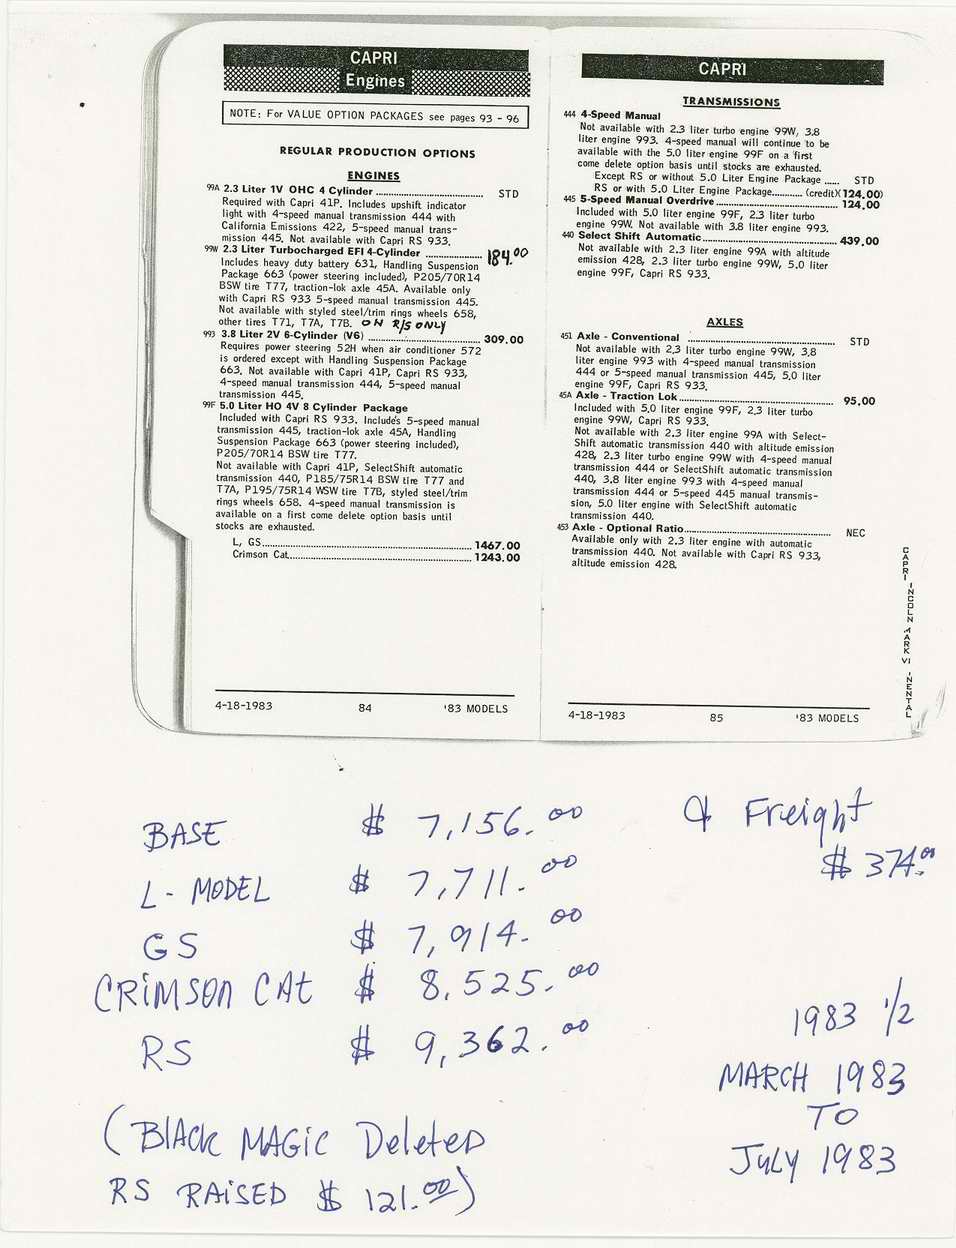 CAPRI
Engines
NOTE: For VALUE OPTION PACKAGES see pages 93 - 96
REGULAR PRODUCTION OPTIONS
ENGINES
99A 2.3 Liter 1V OHC 4 Cylinder ........ STD
Required with Capri 41P. Includes upshift indicator
light with 4-speed manual transmission 444 with
California Emissions 422, 5-speed manual trans-
mission 445. Not available with Capri RS 933.
99W 2.3 Liter Turbocharged EFI 4-Cylinder ........ 184.00
Includes heavy duty battery 631, Handling Suspension
Package 663 (power steering included), P205/70R14
BSW tire T77, traction-lok axle 45A. Available only
with Capri RS 933 5-speed manual transmission 445.
Not available with styled steel/trim rings wheels 658,
other tires T71, T7A, T7B. ON R/S ONLY
993 3.8 Liter 2V 6-Cylinder (V6) ........ 309.00
Requires power steering 52H when air conditioner 572
is ordered except with Handling Suspension Package
663. Not available with Capri 41P, Capri RS 933,
4-speed manual transmission 444, 5-speed manual
transmission 445.
99F 5.0 Liter HO 4V 8 Cylinder Package
Included with Capri RS 933. Includes 5-speed manual
transmission 445, traction-lok axle 45A, Handling
Suspension Package 663 (power steering included),
P205/70R14 BSW tire T77.
Not available with Capri 41P, SelectShift automatic
transmission 440, P185/75R14 BSW tire T77 and
T7A, P195/75R14 WSW tire T7B, styled steel/trim
rings wheels 658. 4-speed manual transmission is
available on a first come delete option basis until
stocks are exhausted.
L, GS........ 1467.00
Crimson Cat........ 1243.00
4-18-1983 84 '83 MODELS
CAPRI
TRANSMISSIONS
444 4-Speed Manual
Not available with 2.3 liter turbo engine 99W, 3.8
liter engine 993. 4-speed manual will continue to be
available with the 5.0 liter engine 99F on a first
come delete option basis until stocks are exhausted.
Except RS or without 5.0 Liter Engine Package ...... STD
RS or with 5.0 Liter Engine Package........ (credit)(124.00)
445 5-Speed Manual Overdrive........ 124.00
Included with 5.0 liter engine 99F, 2.3 liter turbo
engine 99W. Not available with 3.8 liter engine 993.
440 Select Shift Automatic........ 439.00
Not available with 2.3 liter engine 99A with altitude
emission 428, 2.3 liter engine 99W, 5.0 liter
engine 99F, Capri RS 933.
AXLES
451 Axle - Conventional ........ STD
Not available with 2.3 liter turbo engine 99W, 3.8
liter engine 993 with 4-speed manual transmission
444 or 5-speed manual transmission 445, 5.0 liter
engine 99F, Capri RS 933.
45A Axle - Traction Lok........ 95.00
Included with 5.0 liter engine 99F, 2.3 liter turbo
engine 99W, Capri RS 933.
Not available with 2.3 liter engine 99A with Select-
Shift automatic transmission 440 with altitude emission
428, 2.3 liter engine 99W with 4-speed manual
transmission 444 or SelectShift automatic transmission
440, 3.8 liter engine 993 with 4-speed manual
transmission 444 or 5-speed 445 manual transmis-
sion, 5.0 liter engine with SelectShift automatic
transmission 440.
453 Axle - Optional Ratio........ NEC
Available only with 2.3 liter engine with automatic
transmission 440. Not available with Capri RS 933,
altitude emission 428.
4-18-1983 85 '83 MODELS
CAPRI INCOLN MARK VI INENTAL
BASE $ 7,156.00
L- MODEL $ 7,711.00
GS $ 7,914.00
CRIMSON CAT $ 8,525.00
RS $ 9,362.00
(BLACK MAGIC Deleted
RS RAISED $ 121.00)
& Freight
$ 374.00
1983 1/2
MARCH 1983
TO
JULY 1983